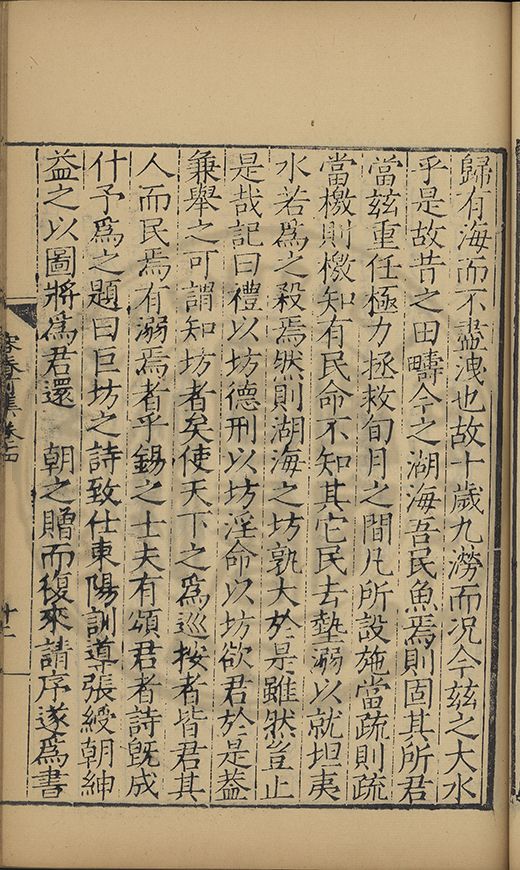 歸有海而不盡洩也故十歲九澇而況今玆之大水
乎是故昔之田疇今之湖海吾民魚焉則固其所君
當玆重任極力拯救旬月之間凡所設施當疏則疏
當檄則檄知有民命不知其它民去墊溺以就坦夷
水若爲之殺焉然則湖海之坊孰大於是雖然豈止
是哉記曰禮以坊德刑以坊淫命以坊欲君於是葢
兼舉之可謂知坊者矣使天下之爲巡按者皆君其
人而民焉有溺焉者乎錫之士夫有頌君者詩旣成
什予爲之題曰巨坊之詩致仕東陽訓導張綬朝紳
益之以圖將爲君還　朝之贈而復來請序遂爲書
容春前集卷十四
十二